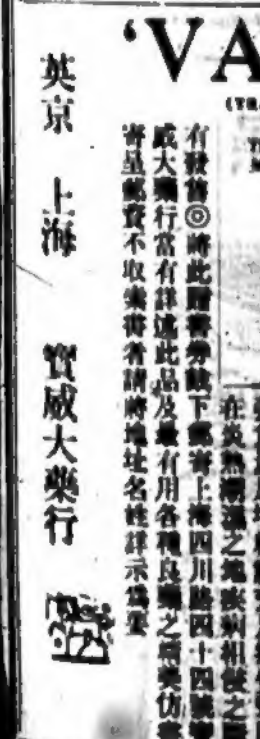 ‘VA
(TRA
在炎熱潮濕之地疾病相侵之
有發售◎將此贈書券截下郵寄上海四川路四十四號寶
威大藥行當有詳述此品及最有用各種良藥之精美仿單
寄呈郵費不取索書者請將地址名姓詳示爲要
英京 上海 寶威大藥行